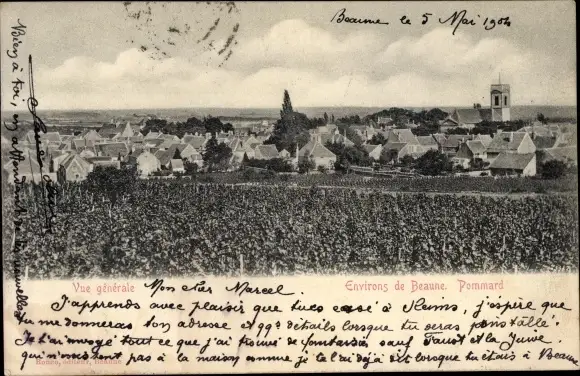 Beaune le 5 Mai 1904
Bien à toi, en attendant de tes nouvelles
Vue générale
Environs de Beaune. Pommard
Mon cher Marcel.
J'apprends avec plaisir que tu es casé à Reims, j'espère que
tu me donneras ton adresse et qqs détails lorsque tu seras installé.
Je t'ai envoyé tout ce que j'ai trouvé de fantaisie sauf Faust et la Juive
qui n'existent pas à la maison comme je te l'ai déjà dit lorsque tu étais à Beaune